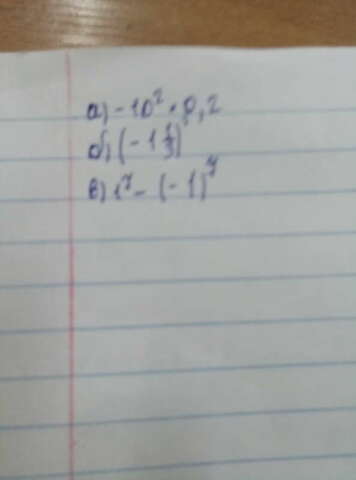 а) -10² · 0,2
б) (-1 1/3)
в) 1⁷ - (-1)⁷